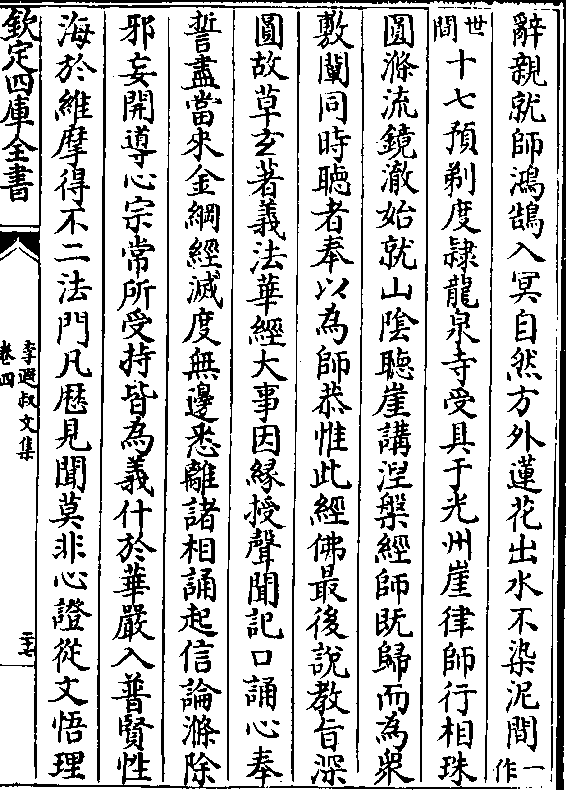 辭親就師鴻鵠入冥自然方外蓮花出水不染泥間一作
世間十七預剃度隷龍泉寺受具于光州崖律師行相珠
圓滌流鏡澈始就山陰聽崖講涅槃經師旣歸而為衆
敷闡同時聽者奉以為師恭惟此經佛最後說教旨深
圓故草玄著義法華經大事因緣授聲聞記口誦心奉
誓盡當來金綱經滅度無邊悉離諸相誦起信論滌除
邪妄開導心宗常所受持皆為義什於華嚴入普賢性
海於維摩得不二法門凡歴見聞莫非心證從文悟理
欽定四庫全書
李遐叔文集
卷四
二十七